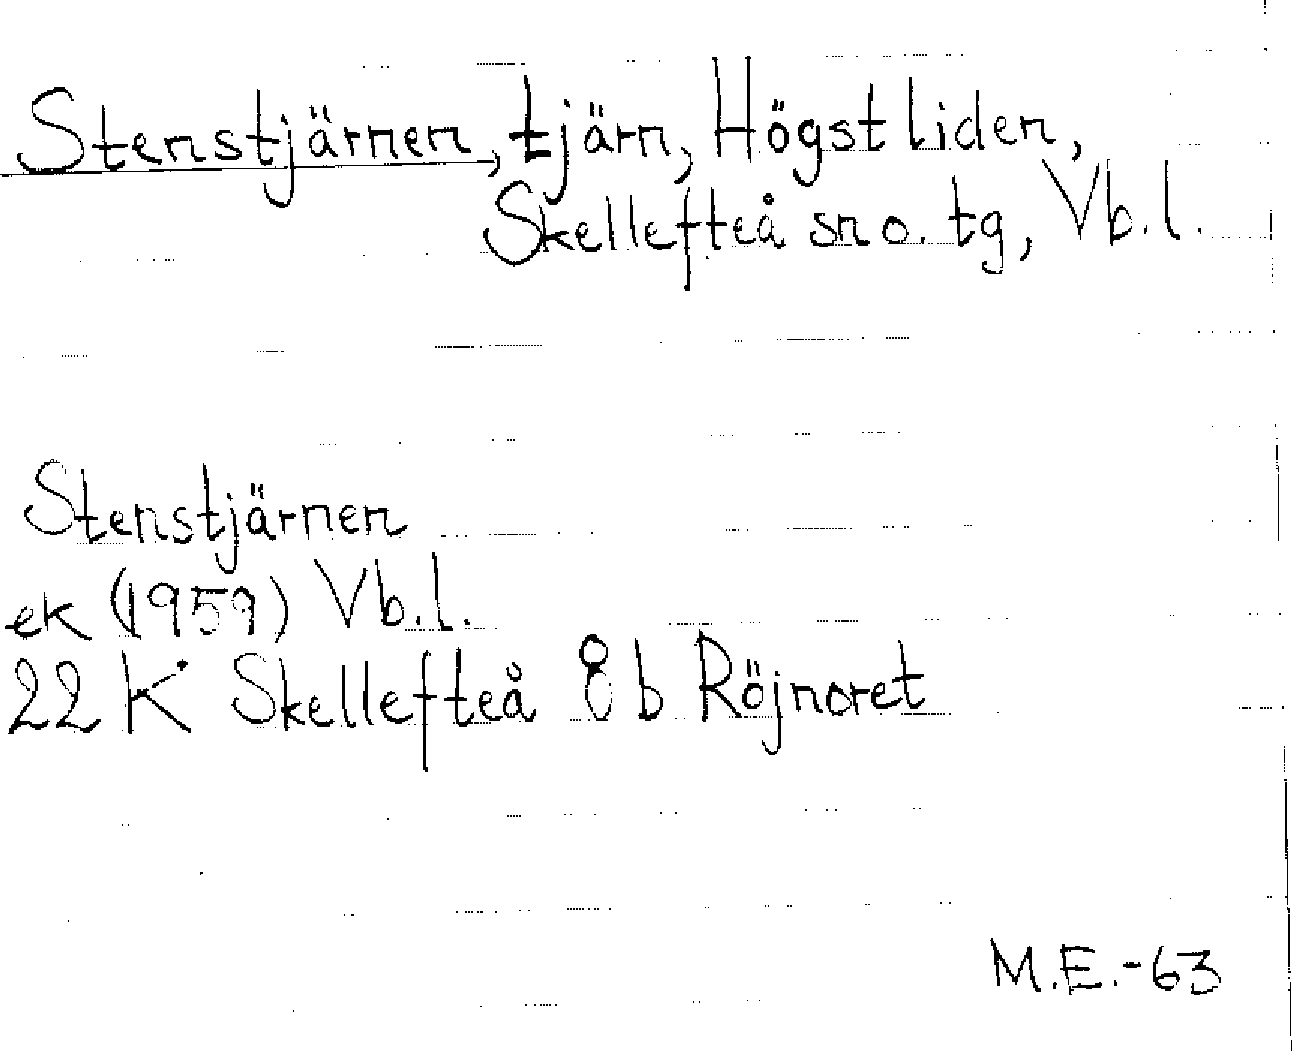 Stenstjärnen, tjärn, Högstliden,
Skellefteå sn o. tg, Vb.l.
Stenstjärnen
ek (1959) Vb.l.
22 K Skellefteå 8 b Röjnoret
M.E.-63